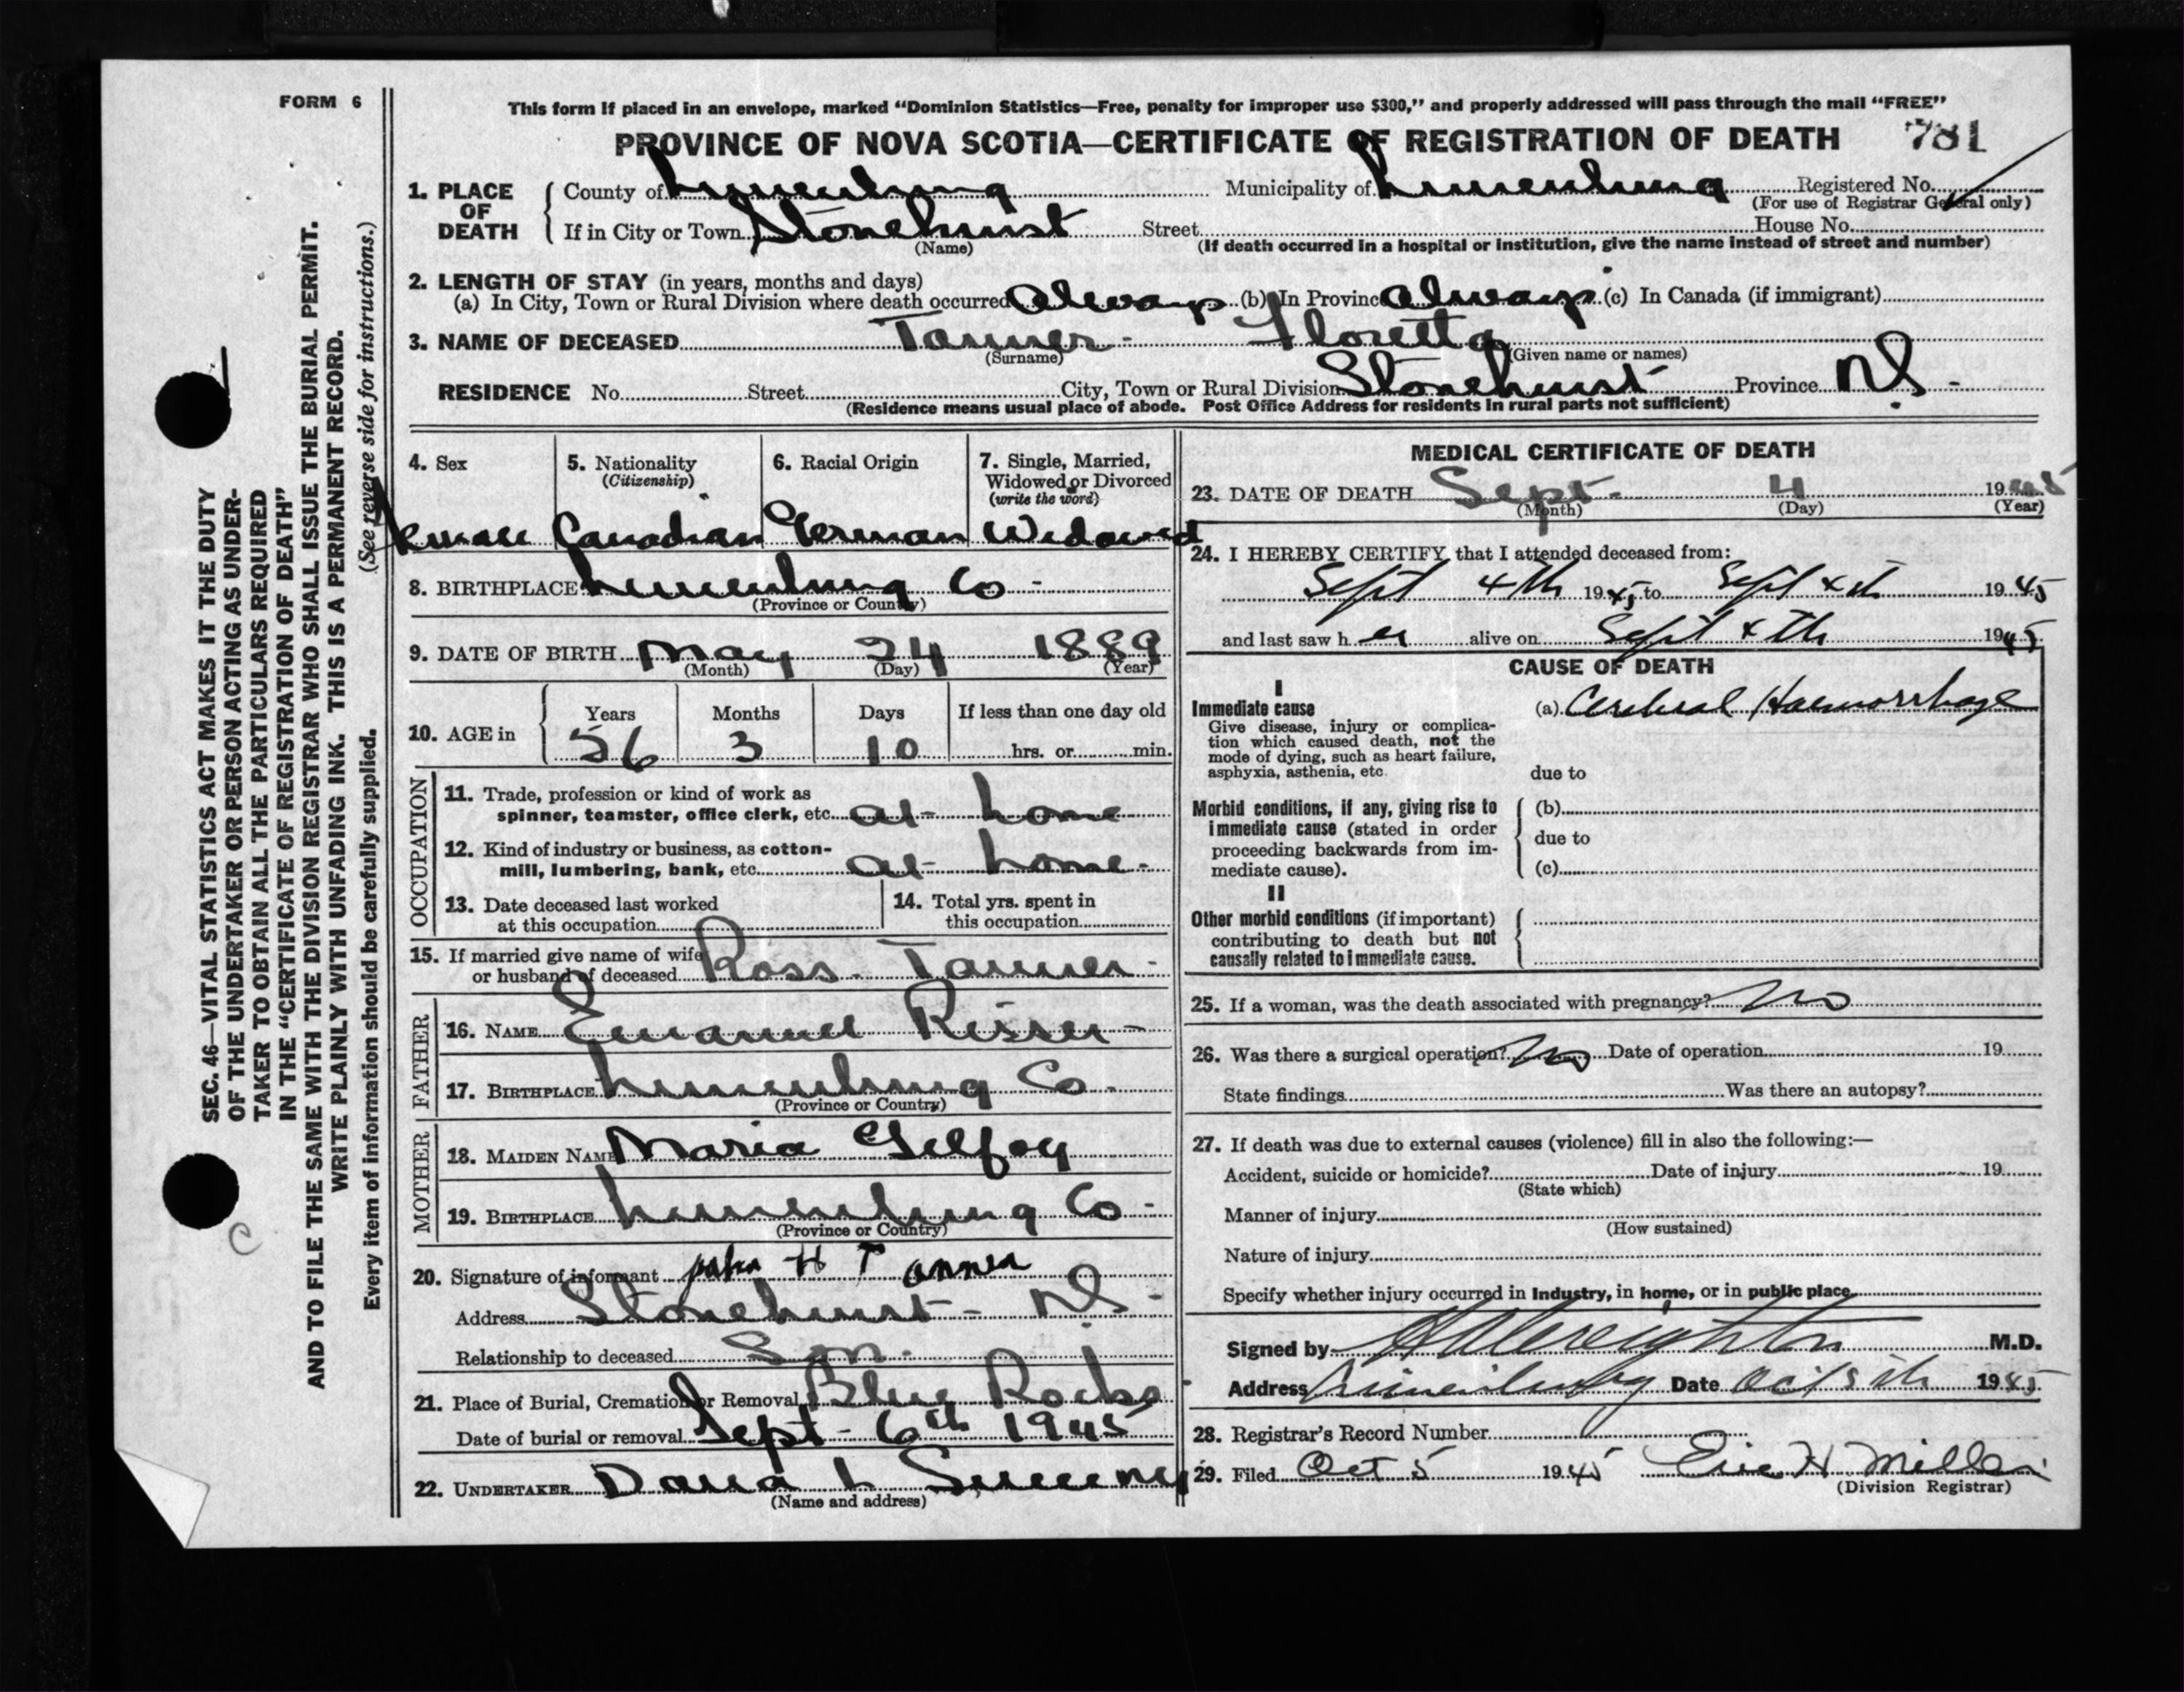 FORM 6
This form if placed in an envelope, marked “Dominion Statistics—Free, penalty for improper use $300,” and properly addressed will pass through the mail “FREE”
PROVINCE OF NOVA SCOTIA—CERTIFICATE OF REGISTRATION OF DEATH 781
1. PLACE OF DEATH County of Lunenburg Municipality of Lunenburg Registered No.
(For use of Registrar General only)
If in City or Town Stonehurst Street House No.
(Name) (If death occurred in a hospital or institution, give the name instead of street and number)
2. LENGTH OF STAY (in years, months and days)
(a) In City, Town or Rural Division where death occurred always (b) In Province always (c) In Canada (if immigrant)
3. NAME OF DECEASED Tanner - Floretta
(Surname) (Given name or names)
RESIDENCE No. Street City, Town or Rural Division Stonehurst Province N.S.
(Residence means usual place of abode. Post Office Address for residents in rural parts not sufficient)
4. Sex 5. Nationality (Citizenship) 6. Racial Origin 7. Single, Married, Widowed or Divorced (write the word)
Female Canadian German Widowed
8. BIRTHPLACE Lunenburg Co -
(Province or Country)
9. DATE OF BIRTH May 24 1889
(Month) (Day) (Year)
10. AGE in Years Months Days If less than one day old
56 3 10 hrs. or min.
OCCUPATION
11. Trade, profession or kind of work as
spinner, teamster, office clerk, etc. at home
12. Kind of industry or business, as cotton-
mill, lumbering, bank, etc. at home
13. Date deceased last worked
at this occupation
14. Total yrs. spent in
this occupation
15. If married give name of wife
or husband of deceased Ross Tanner
FATHER
16. NAME Emanuel Risser
17. BIRTHPLACE Lunenburg Co
(Province or Country)
MOTHER
18. MAIDEN NAME Maria Gelfoy
19. BIRTHPLACE Lunenburg Co
(Province or Country)
20. Signature of informant John H Tanner
Address Stonehurst - N.S.
Relationship to deceased Son
21. Place of Burial, Cremation or Removal Blue Rocks
Date of burial or removal Sept - 6th 1945
22. UNDERTAKER L Sweeny
(Name and address)
MEDICAL CERTIFICATE OF DEATH
23. DATE OF DEATH Sept - 4 1945
(Month) (Day) (Year)
24. I HEREBY CERTIFY that I attended deceased from:
Sept 4th 1945 to Sept 4th 1945
and last saw her alive on Sept 4th 1945
CAUSE OF DEATH
I
Immediate cause
Give disease, injury or complica-
tion which caused death, not the
mode of dying, such as heart failure,
asphyxia, asthenia, etc.
(a) Cerebral Haemorrhage
due to
Morbid conditions, if any, giving rise to
immediate cause (stated in order
proceeding backwards from im-
mediate cause).
(b)
due to
(c)
II
Other morbid conditions (if important)
contributing to death but not
causally related to immediate cause.
25. If a woman, was the death associated with pregnancy? No
26. Was there a surgical operation? No Date of operation 19
State findings Was there an autopsy?
27. If death was due to external causes (violence) fill in also the following:—
Accident, suicide or homicide? Date of injury 19
(State which)
Manner of injury
(How sustained)
Nature of injury
Specify whether injury occurred in Industry, in home, or in public place
Signed by Creighton M.D.
Address Lunenburg Date Oct 5th 1945
28. Registrar's Record Number
29. Filed Oct 5 1945 Eric H Miller
(Division Registrar)
SEC. 46—VITAL STATISTICS ACT MAKES IT THE DUTY
OF THE UNDERTAKER OR PERSON ACTING AS UNDER-
TAKER TO OBTAIN ALL THE PARTICULARS REQUIRED
IN THE “CERTIFICATE OF REGISTRATION OF DEATH”
AND TO FILE THE SAME WITH THE DIVISION REGISTRAR WHO SHALL ISSUE THE BURIAL PERMIT.
WRITE PLAINLY WITH UNFADING INK. THIS IS A PERMANENT RECORD.
Every item of information should be carefully supplied. (See reverse side for instructions.)